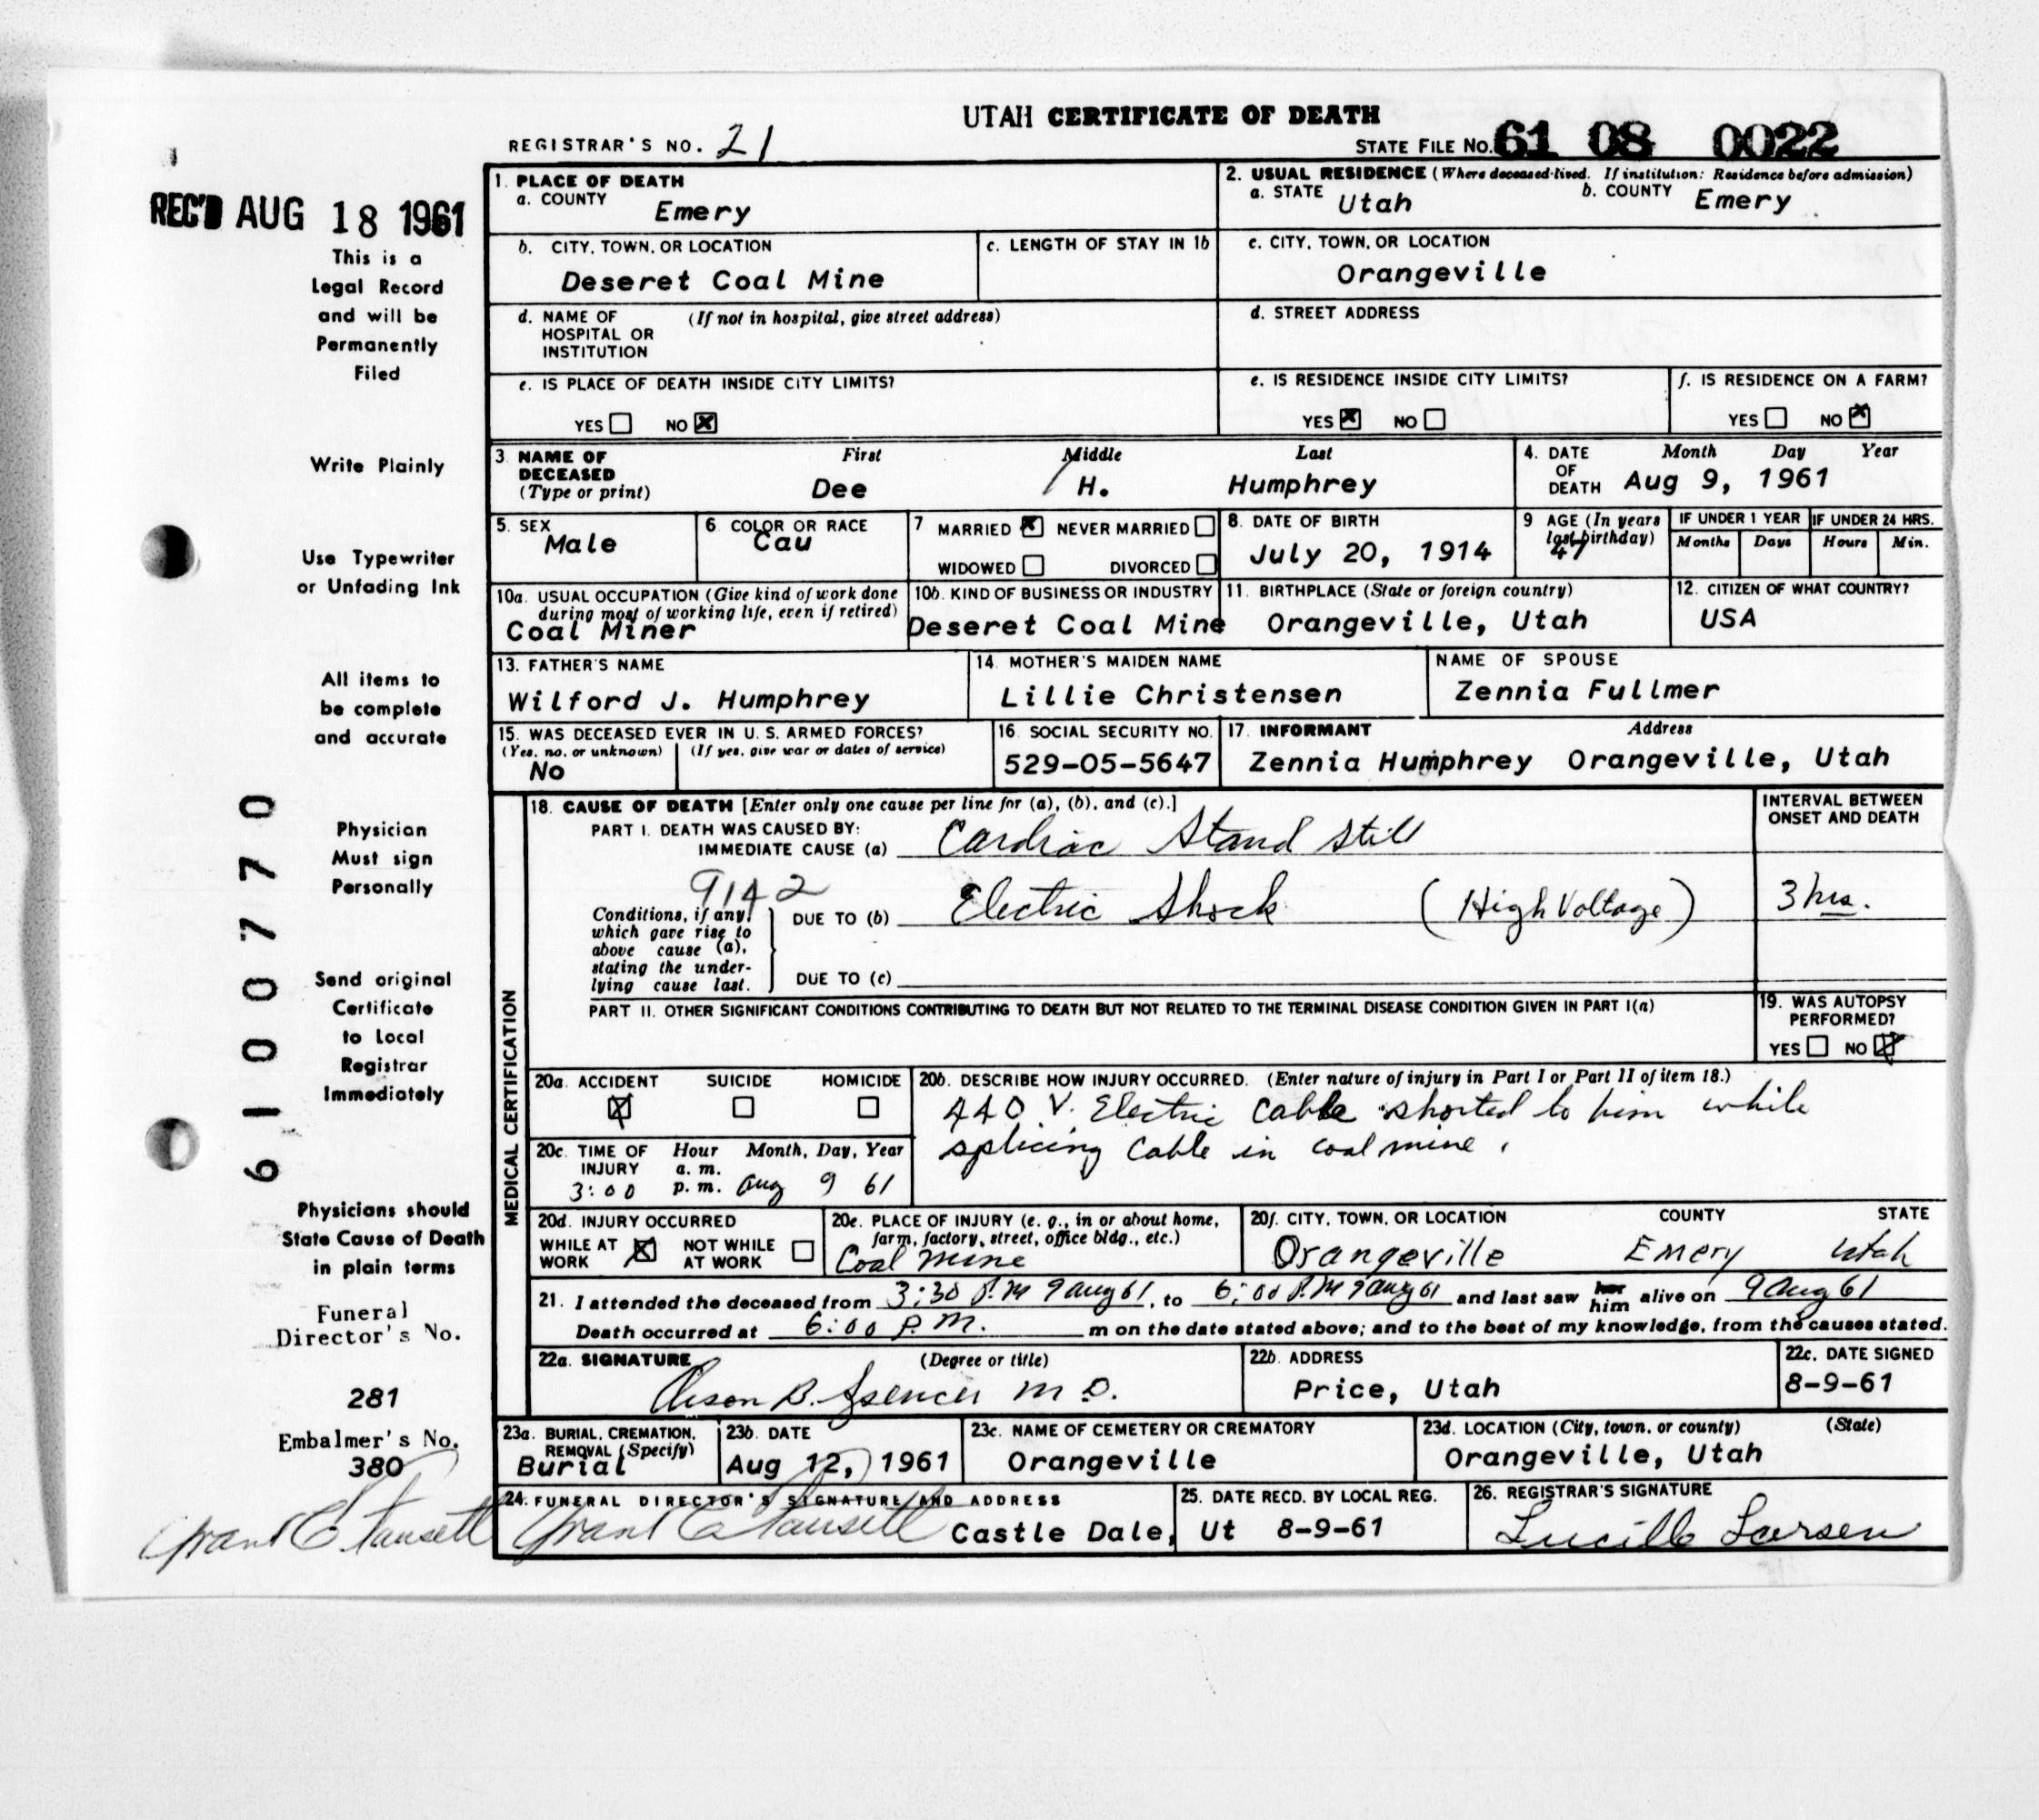 UTAH CERTIFICATE OF DEATH
REGISTRAR'S NO. 21
STATE FILE NO. 61 08 0022
REC'D AUG 18 1961
This is a
Legal Record
and will be
Permanently
Filed
Write Plainly
Use Typewriter
or Unfading Ink
All items to
be complete
and accurate
Physician
Must sign
Personally
Send original
Certificate
to Local
Registrar
Immediately
Physicians should
State Cause of Death
in plain terms
Funeral
Director's No.
281
Embalmer's No.
380
6100770
1. PLACE OF DEATH
a. COUNTY Emery
2. USUAL RESIDENCE (Where deceased lived. If institution: Residence before admission)
a. STATE Utah b. COUNTY Emery
b. CITY, TOWN, OR LOCATION
Deseret Coal Mine
c. LENGTH OF STAY IN 1b
c. CITY, TOWN, OR LOCATION
Orangeville
d. NAME OF HOSPITAL OR INSTITUTION (If not in hospital, give street address)
d. STREET ADDRESS
e. IS PLACE OF DEATH INSIDE CITY LIMITS?
YES ☐ NO ☒
e. IS RESIDENCE INSIDE CITY LIMITS?
YES ☒ NO ☐
f. IS RESIDENCE ON A FARM?
YES ☐ NO ☒
3. NAME OF DECEASED (Type or print)
First Middle Last
Dee H. Humphrey
4. DATE OF DEATH Month Day Year
Aug 9, 1961
5. SEX
Male
6. COLOR OR RACE
Cau
7. MARRIED ☒ NEVER MARRIED ☐
WIDOWED ☐ DIVORCED ☐
8. DATE OF BIRTH
July 20, 1914
9. AGE (In years last birthday)
47
IF UNDER 1 YEAR
Months Days
IF UNDER 24 HRS.
Hours Min.
10a. USUAL OCCUPATION (Give kind of work done during most of working life, even if retired)
Coal Miner
10b. KIND OF BUSINESS OR INDUSTRY
Deseret Coal Mine
11. BIRTHPLACE (State or foreign country)
Orangeville, Utah
12. CITIZEN OF WHAT COUNTRY?
USA
13. FATHER'S NAME
Wilford J. Humphrey
14. MOTHER'S MAIDEN NAME
Lillie Christensen
NAME OF SPOUSE
Zennia Fullmer
15. WAS DECEASED EVER IN U. S. ARMED FORCES?
(Yes, no, or unknown) (If yes, give war or dates of service)
No
16. SOCIAL SECURITY NO.
529-05-5647
17. INFORMANT Address
Zennia Humphrey Orangeville, Utah
MEDICAL CERTIFICATION
18. CAUSE OF DEATH [Enter only one cause per line for (a), (b), and (c).]
PART I. DEATH WAS CAUSED BY:
IMMEDIATE CAUSE (a) Cardiac Stand Still
INTERVAL BETWEEN ONSET AND DEATH
9142
Conditions, if any, which gave rise to above cause (a), stating the underlying cause last.
DUE TO (b) Electric Shock (High Voltage) 3 hrs.
DUE TO (c)
PART II. OTHER SIGNIFICANT CONDITIONS CONTRIBUTING TO DEATH BUT NOT RELATED TO THE TERMINAL DISEASE CONDITION GIVEN IN PART I(a)
19. WAS AUTOPSY PERFORMED?
YES ☐ NO ☒
20a. ACCIDENT ☒ SUICIDE ☐ HOMICIDE ☐
20b. DESCRIBE HOW INJURY OCCURRED. (Enter nature of injury in Part I or Part II of item 18.)
440 V. Electric Cable shorted to him while
splicing Cable in coal mine.
20c. TIME OF INJURY Hour Month, Day, Year
a. m.
3:00 p. m. Aug 9 61
20d. INJURY OCCURRED
WHILE AT WORK ☒ NOT WHILE AT WORK ☐
20e. PLACE OF INJURY (e. g., in or about home, farm, factory, street, office bldg., etc.)
Coal Mine
20f. CITY, TOWN, OR LOCATION COUNTY STATE
Orangeville Emery Utah
21. I attended the deceased from 3:30 P.M 9 Aug 61, to 6:00 P.M 9 Aug 61 and last saw her him alive on 9 Aug 61
Death occurred at 6:00 P.M. m on the date stated above; and to the best of my knowledge, from the causes stated.
22a. SIGNATURE (Degree or title)
B. Spencer M D.
22b. ADDRESS
Price, Utah
22c. DATE SIGNED
8-9-61
23a. BURIAL, CREMATION, REMOVAL (Specify)
Burial
23b. DATE
Aug 12, 1961
23c. NAME OF CEMETERY OR CREMATORY
Orangeville
23d. LOCATION (City, town, or county) (State)
Orangeville, Utah
24. FUNERAL DIRECTOR'S SIGNATURE AND ADDRESS
Grant Castle Dale, Ut
25. DATE RECD. BY LOCAL REG.
8-9-61
26. REGISTRAR'S SIGNATURE
Lucille Larsen
Grant